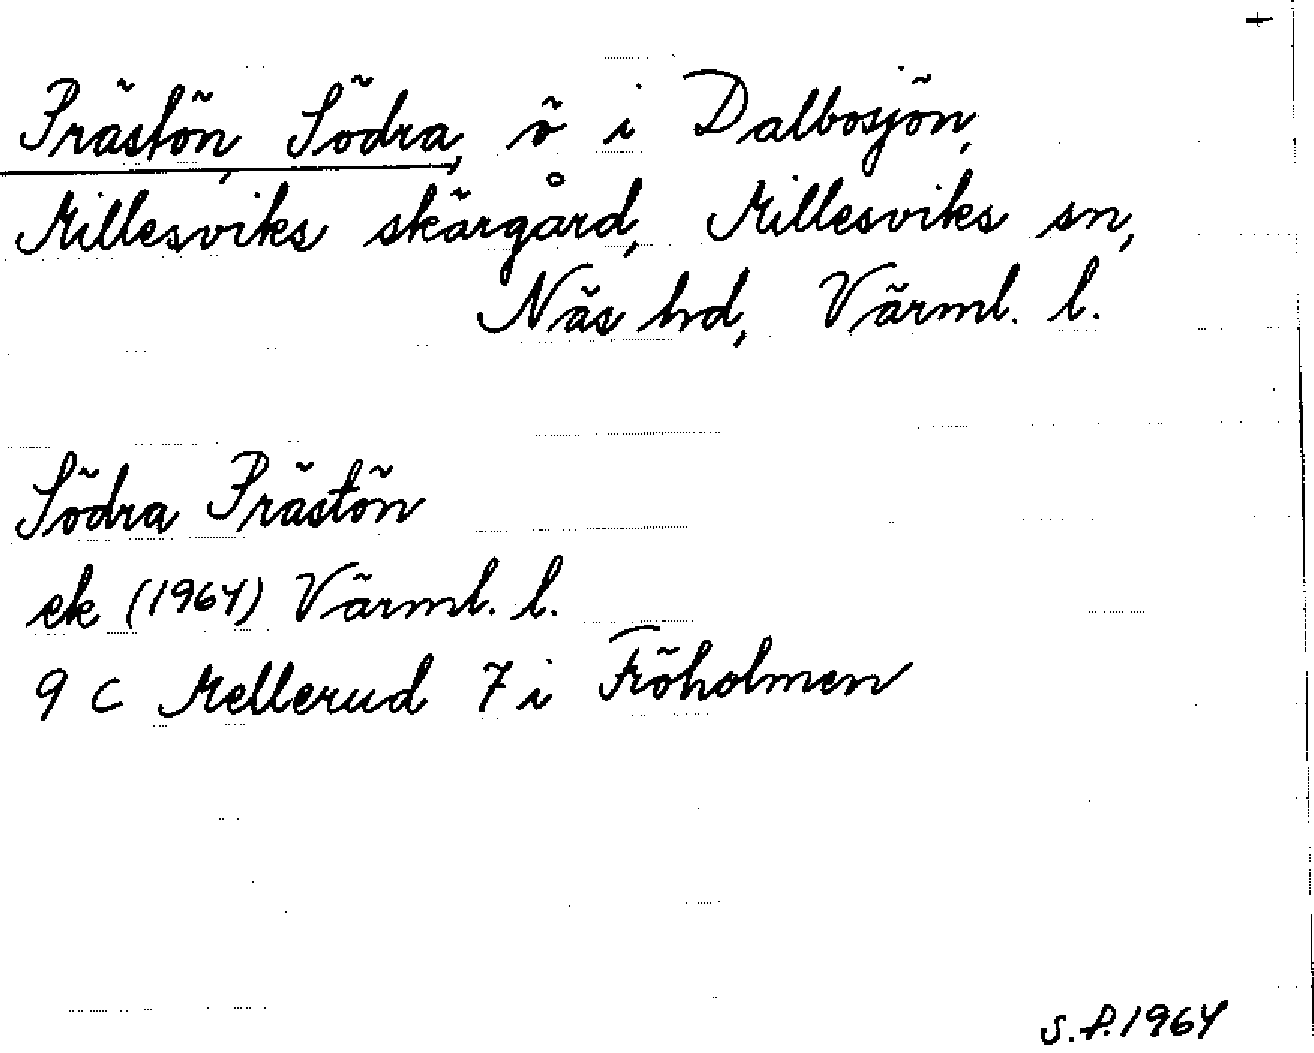 Prästön, Södra, ö i Dalbosjön,
Millesviks skärgård, Millesviks sn,
Näs hd, Värml. l.
Södra Prästön
ek (1964) Värml. l.
9 C Mellerud 7 i Fröholmen
S.f. 1964